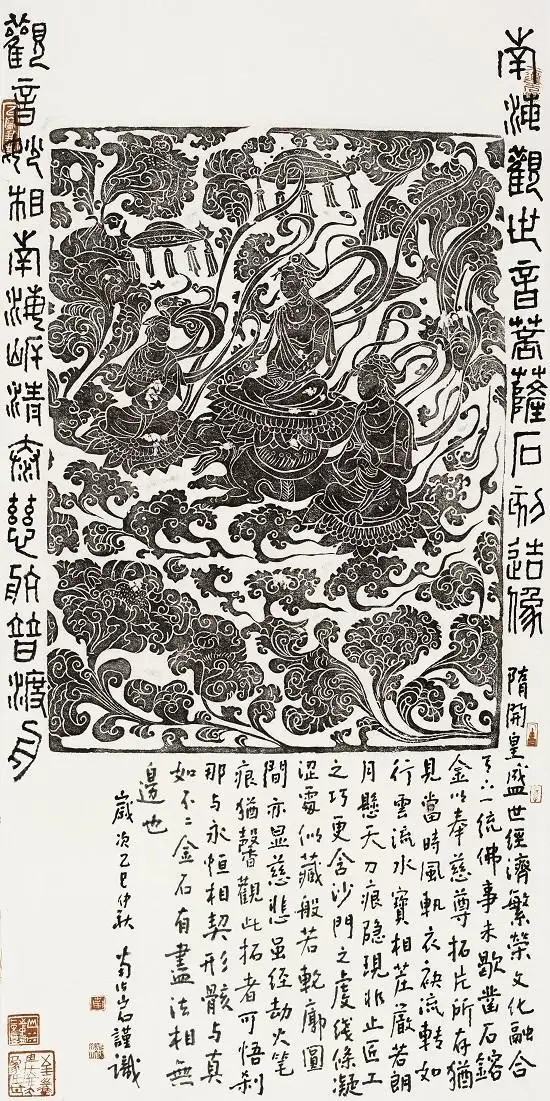 南海觀世音菩薩石刻造像
隋開皇盛世經濟繁榮文化融合
天下一統佛事未歇鑿石鎔
金以奉慈尊拓片所存猶
見當時風軌衣袂流轉如
行雲流水寶相莊嚴若朗
月懸天刀痕隐現非止匠工
之巧更含沙門之虔线條凝
涩處似藏般若軌廓圓
間亦显慈悲虽經劫火笔
痕猶馨觀此拓者可悟刹
那与永恒相契形骸与真
如不二金石有盡法相無
邊也
歲次乙巳仲秋 石謹識
觀音妙相南海岸清慈航普渡舟